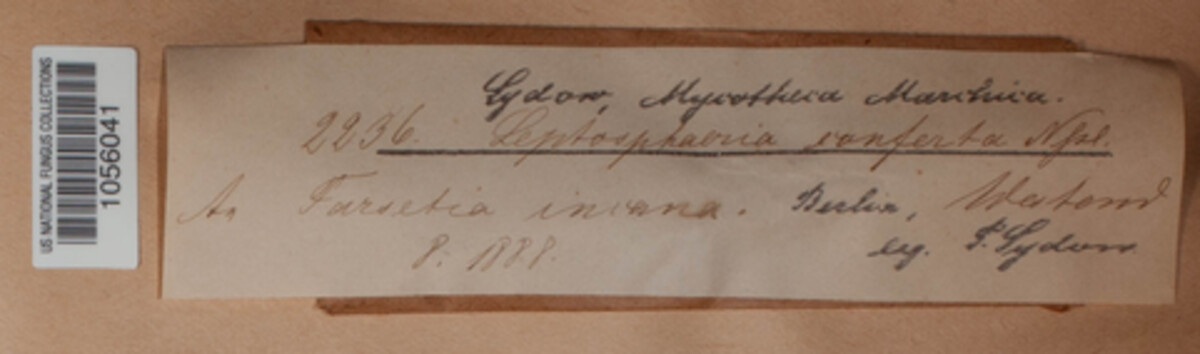 US NATIONAL FUNGUS COLLECTIONS
1056041
Sydow, Mycotheca Marchica.
2236. Leptosphaeria conferta Nssl.
An Farsetia incana. Berlin, Westend
8. 1888. leg. P. Sydow